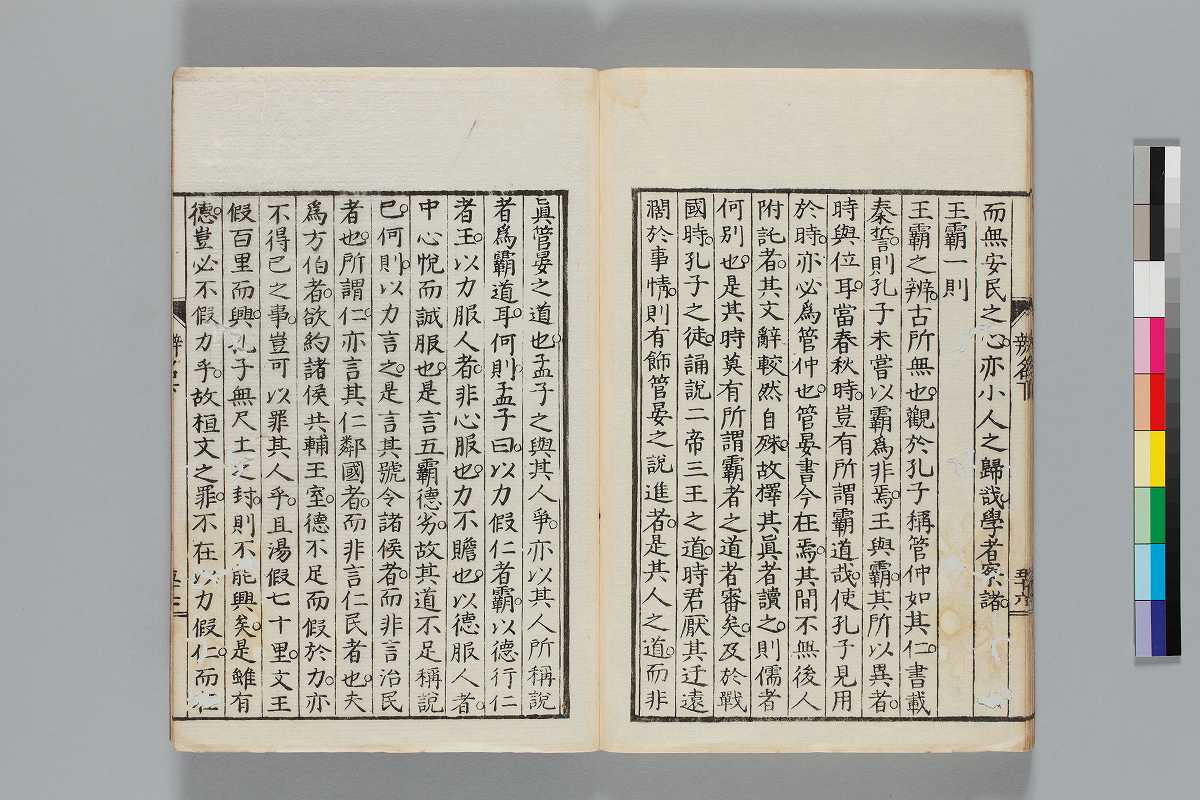 而無安民之心。亦小人之歸哉。學者察諸。
王霸一則
王霸之辨。古所無也。觀於孔子稱管仲如其仁。書載
秦誓。則孔子未嘗以霸爲非焉。王與霸。其所以異者。
時與位耳。當春秋時。豈有所謂霸道哉。使孔子見用
於時。亦必爲管仲也。管晏書今在焉。其間不無後人
附託者。其文辭較然自殊。故擇其眞者讀之。則儒者
何別也。是其時莫有所謂霸者之道者審矣。及於戰
國時。孔子之徒。誦說二帝三王之道。時君厭其迂遠
濶於事情。則有飾管晏之說進者。是其人之道。而非
眞管晏之道也。孟子之與其人爭。亦以其人所稱說
者爲霸道耳。何則。孟子曰。以力假仁者霸。以德行仁
者王。以力服人者。非心服也。力不贍也。以德服人者。
中心悅而誠服也。是言五霸德劣。故其道不足稱說
已。何則。以力言之。是言其號令諸侯者。而非言治民
者也。所謂仁。亦言其仁鄰國者。而非言仁民者也。夫
爲方伯者。欲約諸侯共輔王室。德不足而假於力。亦
不得已之事。豈可以罪其人乎。且湯假七十里。文王
假百里而興。孔子無尺土之封。則不能興矣。是雖有
德。豈必不假力乎。故桓文之罪。不在以力假仁。而在
辨名下